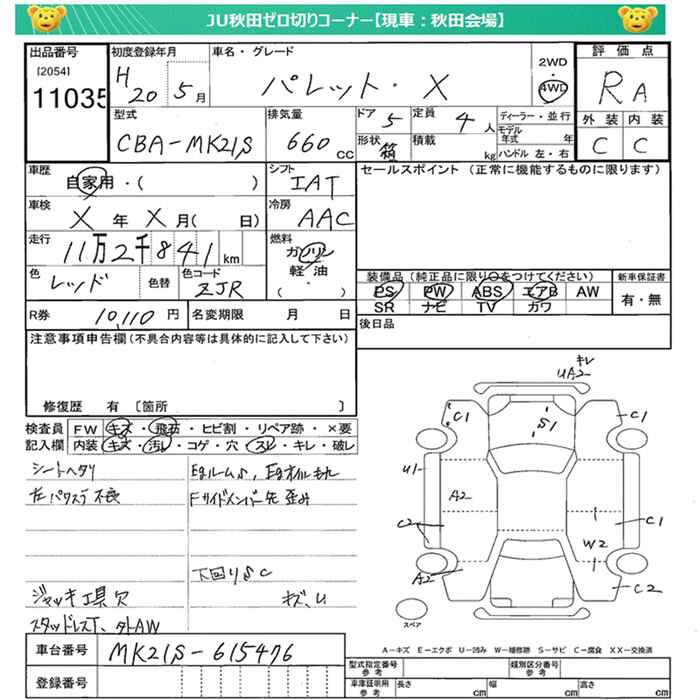 JU秋田ゼロ切りコーナー【現車：秋田会場】
出品番号
[2054]
11035
初度登録年月
H 20 5月
車名・グレード
パレット・X
2WD
4WD
評価点
RA
外装 内装
C C
型式
CBA-MK21S
排気量
660 CC
ドア 5
定員 4人
形状 箱
積載 kg
ディーラー・並行
モデル年式 年
ハンドル 左・右
車歴
自家用・( )
シフト
IAT
セールスポイント (正常に機能するものに限ります)
車検
X年X月( 日)
冷房
AAC
走行
11万2千841km
燃料
ガソリン
軽油
( ・ )
色
レッド
色替
色コード
ZJR
装備品 (純正品に限り○をつけてください)
PS PW ABS エアB AW
SR ナビ TV カワ
新車保証書
有・無
R券 10,110円
名変期限 月 日
後日品
注意事項申告欄(不具合内容等は具体的に記入して下さい)
修復歴 有 [箇所 ]
検査員記入欄
FW キズ・飛石・ヒビ割・リペア跡・×要
内装 キズ・汚れ・コゲ・穴・スレ・キレ・破レ
シートヘタリ
左パワスラ不良
Egルームs,Egオイルもれ
Fサイドメンバー先歪み
下回りSC
ジャッキ工具欠
キズ、U
スタッドレスT、タトAW
キレ
UA2
C1
S1
C1
U1
A2
C2
C1
W2
A2
C2
スペア
A-キズ E-エクボ U-凹み W-補修跡 S-サビ C-腐食 XX-交換済
車台番号
MK21S-615476
登録番号
型式指定番号
参考
類別区分番号
参考
車庫証明用
参考
長さ cm
幅 cm
高さ cm